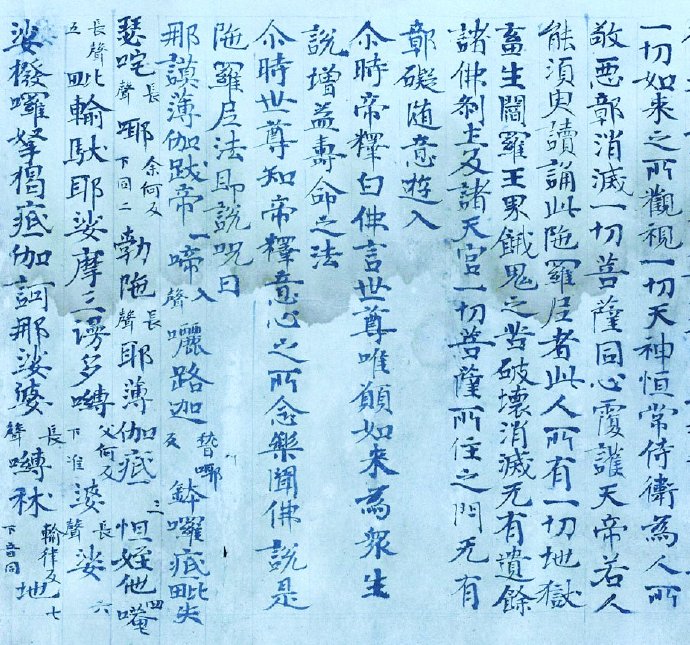 一切如来之所觀視一切天神恒常侍衛為人所
敬悪鄣消滅一切菩薩同心覆護天帝若人
能須臾讀誦此陁羅尼者此人所有一切地獄
畜生閻羅王界餓鬼之苦破壞消滅无有遺餘
諸佛刹土及諸天宮一切菩薩所住之門无有
鄣礙随意遊入
尒時帝釋白佛言世尊唯願如来為衆生
說增益壽命之法
尒時世尊知帝釋意心之所念樂聞佛說是
陁羅尼法即說呪曰
那謨薄伽跋帝一啼入聲囇路迦反鉢囉底毗失
瑟咤長聲耶余何反下同二勃陁長聲耶薄伽底三怛姪他四唵
長聲五毗輸馱耶娑摩三謗多嚩父何反下准婆長聲娑六
娑撥囉拏揭底伽訶那娑婆長聲嚩秫輸律反七地下音同